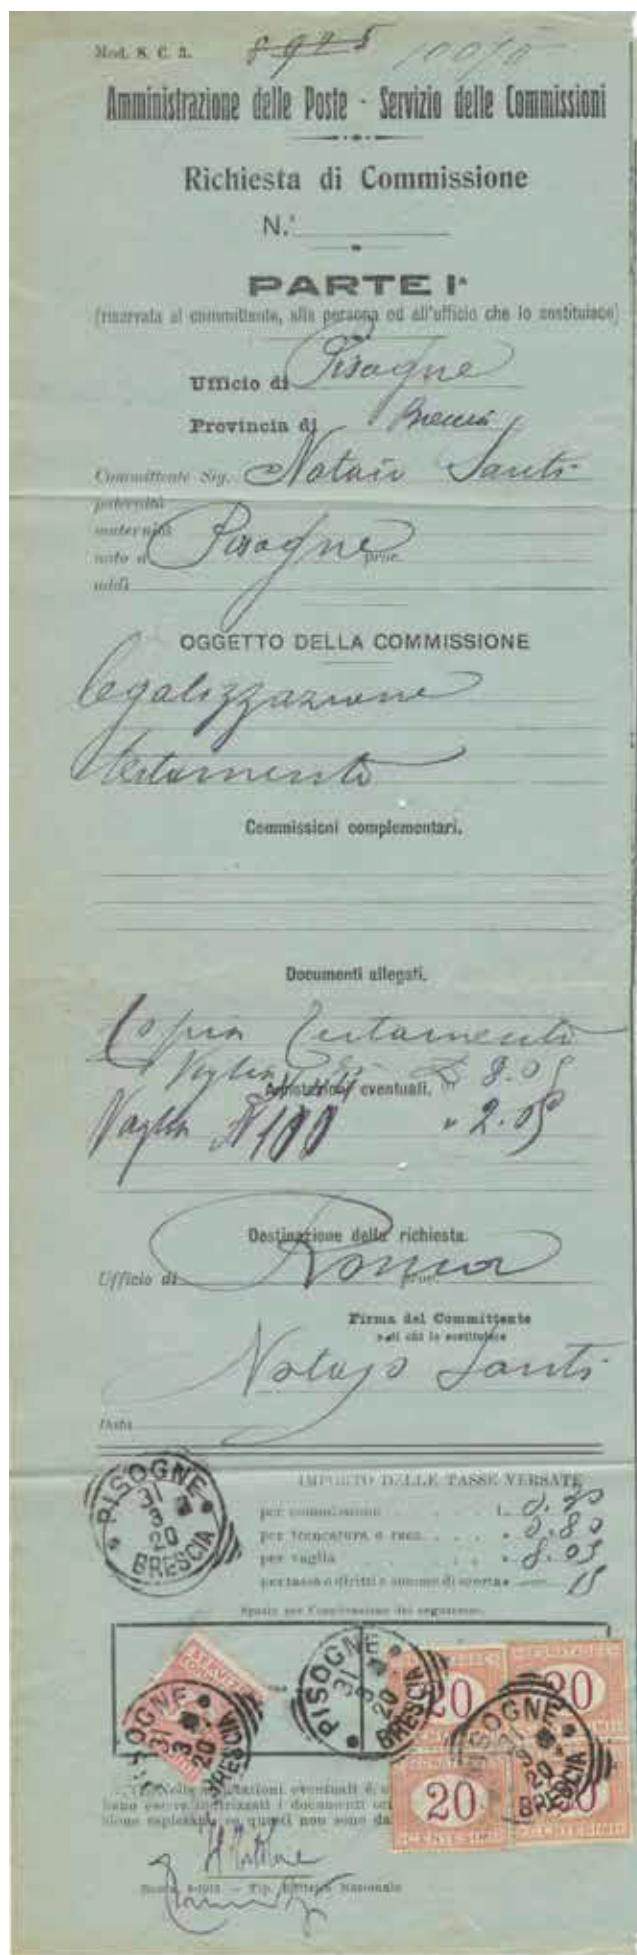 Mod. S. C. 3.
8925
Amministrazione delle Poste - Servizio delle Commissioni
Richiesta di Commissione
N.°
PARTE Iª
(riservata al committente, alla persona od all'ufficio che lo sostituisce)
Ufficio di Pisogne
Provincia di Brescia
Committente Sig. Notaio Santi
paternità
maternità
nato a Pisogne prov.
addì
OGGETTO DELLA COMMISSIONE
Legalizzazione
testamento
Commissioni complementari.
Documenti allegati.
Copia testamento
Vaglia 8.05
Annotazioni eventuali.
Vaglia N 100 " 2.05
Destinazione della richiesta.
Ufficio di Roma prov.
Firma del Committente
o di chi lo sostituisce
Notajo Santi
Data
IMPORTO DELLE TASSE VERSATE
per commissione L.
per francatura e racc. " 0.80
per vaglia " 8.05
per tasse o diritti e somme di scorta " 15
Spazio per l'applicazione dei segnatasse.
PISOGNE
31 3 20
BRESCIA
PISOGNE
31 3 20
BRESCIA
PISOGNE
31 3 20
BRESCIA
PISOGNE
31 3 20
BRESCIA
SEGNATASSE
20
20
20
20
CENTESIMI
CENTESIMI
Nelle annotazioni eventuali
essere indirizzati i documenti
se questi non sono
Tip. Editrice Nazionale